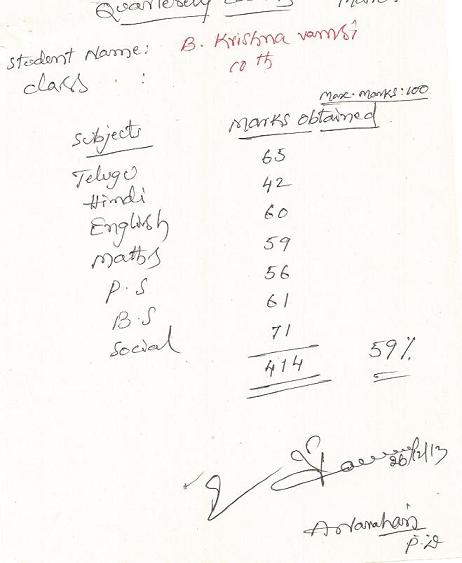 Quarterely
Student Name: B. Krishna vamsi
class : 10 th
Max. Marks: 100
Subjects Marks obtained
Telugu 65
Hindi 42
English 60
Maths 59
P.S 56
B.S 61
Social 71
414 59%
26/12/13
P.D